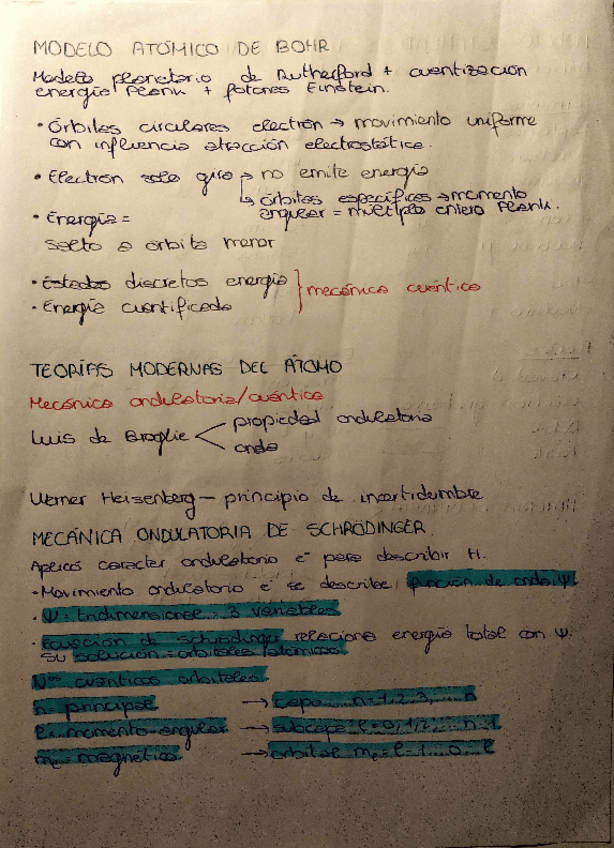 MODELO ATÓMICO DE BOHR
Modelo planetario de Rutherford + cuantización
energía Plank + fotones Einstein.
• Órbitas circulares electrón → movimiento uniforme
con influencia atracción electrostática.
• Electrón solo gira → no emite energía
↳ órbitas específicas → momento
angular = múltiplo entero Plank.
• Energía =
salto a órbita menor
• Estados discretos energía
• Energía cuantificada } mecánica cuántica
TEORÍAS MODERNAS DEL ÁTOMO
Mecánica ondulatoria/cuántica
Luis de Broglie < propiedad ondulatoria
onda
Werner Heisenberg — principio de incertidumbre
MECÁNICA ONDULATORIA DE SCHRÖDINGER
Aplicas caracter ondulatorio e⁻ para describir H.
• Movimiento ondulatorio e⁻ se describe, función de onda, Ψ.
• Ψ: tridimensional = 3 variables
• Ecuación de schrödinger relaciona energía total con Ψ.
su solución = orbitales atómicos
Nos cuánticos orbitales.
n = principal → capa ... n=1,2,3, .... n
l = momento angular → subcapa l=0,1,2, ... n-1
ml = magnético → orbital ml=l-1...0...l